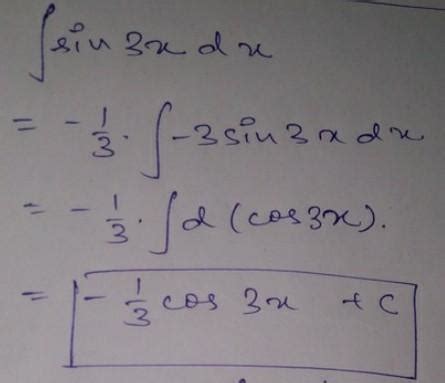 ∫ sin 3x dx
= - 1/3 . ∫ -3 sin 3x dx
= - 1/3 . ∫ d (cos 3x).
= - 1/3 cos 3x + c